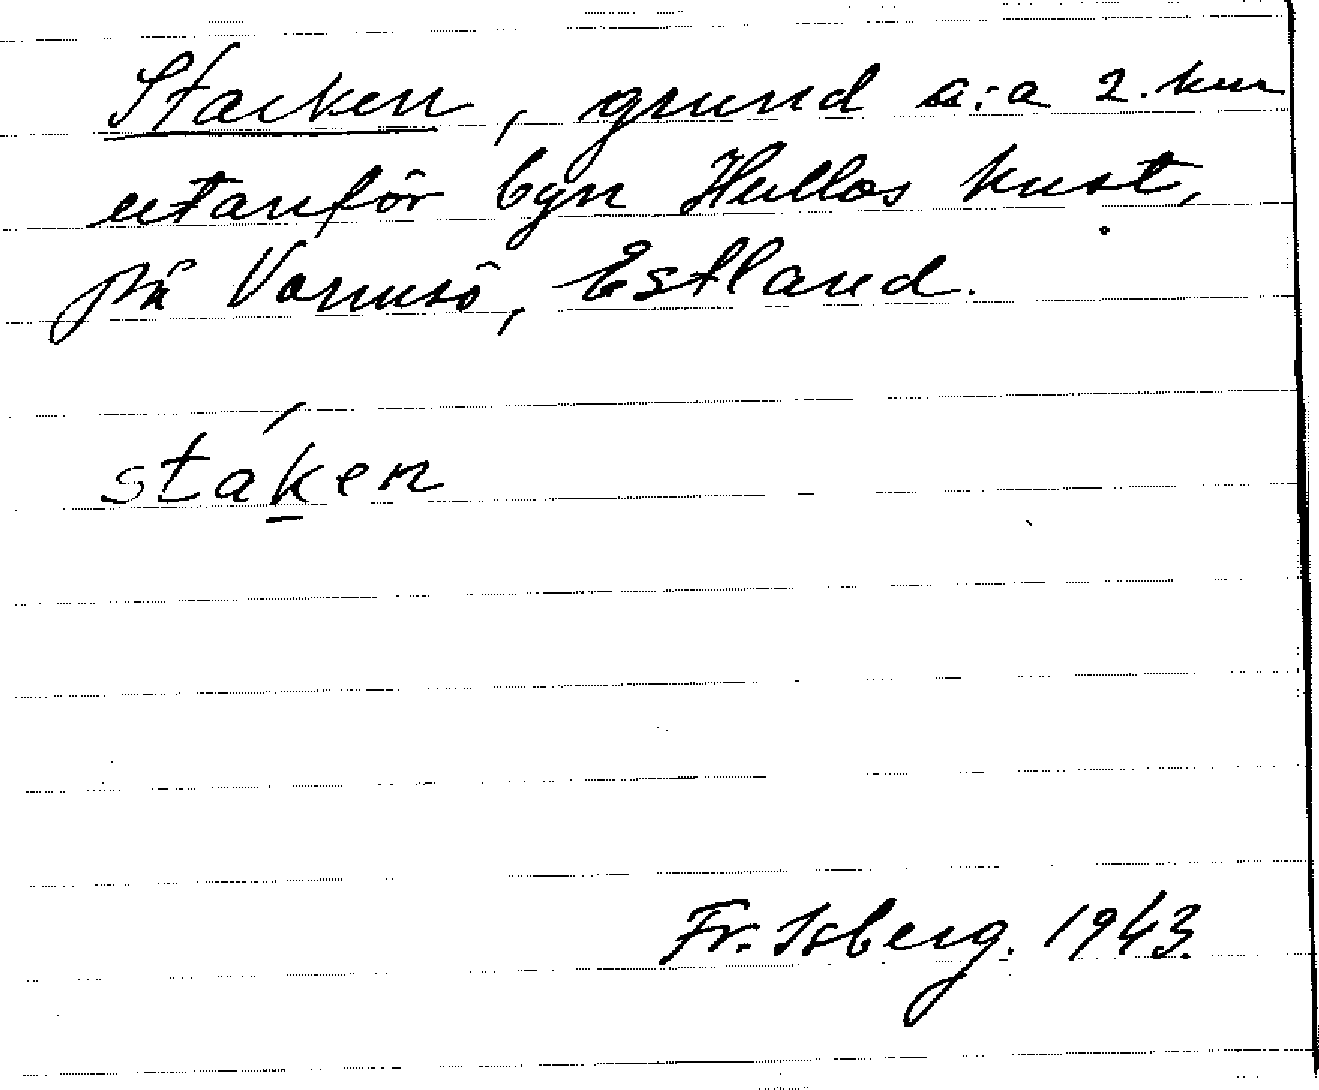 Stacken, grund c:a 2. km
utanför byn Hullos kust,
på Vormsö, Estland.
staḵ́en
Fr. Isberg. 1943.